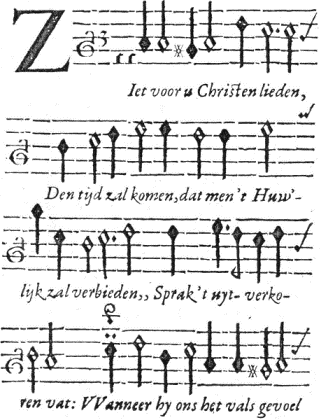 ZIet voor u Christen lieden,
Den tijd zal komen, dat men't Huw'-
lijk zal verbieden,, Sprak't uyt-verko-
ren vat: VVanneer hy ons het vals gevoel